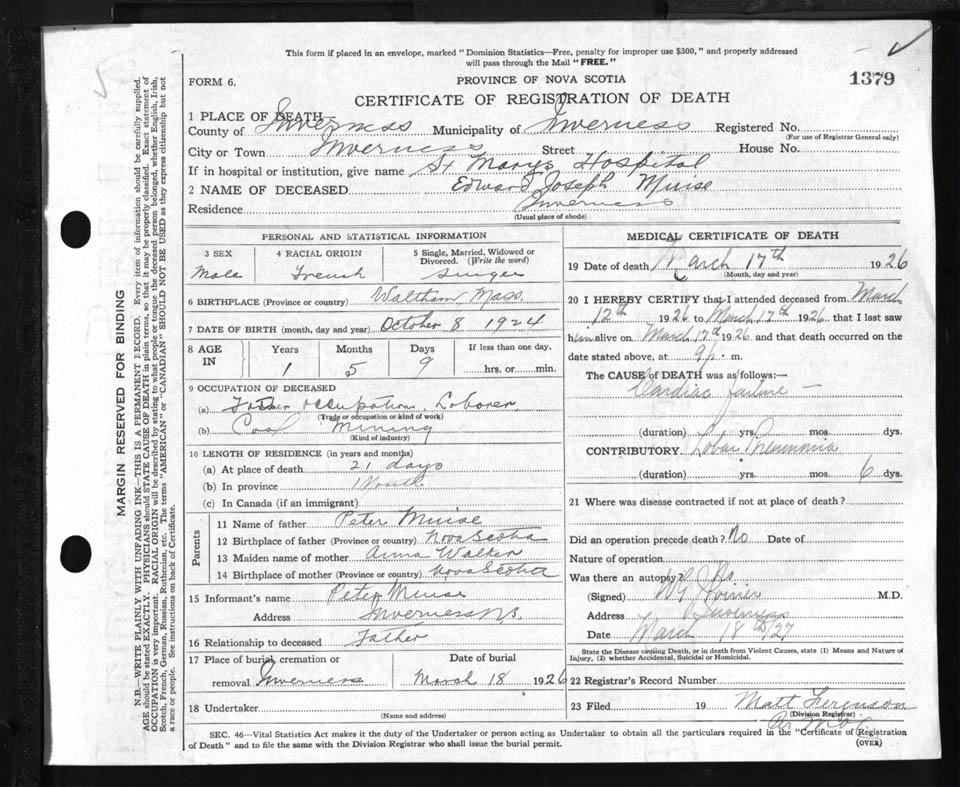 This form if placed in an envelope, marked "Dominion Statistics—Free, penalty for improper use $300," and properly addressed
will pass through the Mail "FREE."
FORM 6.
PROVINCE OF NOVA SCOTIA
1379
CERTIFICATE OF REGISTRATION OF DEATH
1 PLACE OF DEATH—
County of Inverness Municipality of Inverness Registered No.
(For use of Registrar General only)
City or Town Inverness Street House No.
If in hospital or institution, give name St Marys Hospital
2 NAME OF DECEASED Edward Joseph Muise
Residence Inverness
(Usual place of abode)
PERSONAL AND STATISTICAL INFORMATION
3 SEX 4 RACIAL ORIGIN 5 Single, Married, Widowed or
Divorced. (Write the word)
Male French Single
6 BIRTHPLACE (Province or country) Waltham, Mass.
7 DATE OF BIRTH (month, day and year) October 8 1924
8 AGE IN Years Months Days If less than one day,
1 5 9 hrs. or min.
9 OCCUPATION OF DECEASED
(a) Father occupation, Laborer
(Trade or occupation or kind of work)
(b) Coal Mining
(Kind of industry)
10 LENGTH OF RESIDENCE (in years and months)
(a) At place of death 21 days
(b) In province 1 Month
(c) In Canada (if an immigrant)
Parents
11 Name of father Peter Muise
12 Birthplace of father (Province or country) Nova Scotia
13 Maiden name of mother Anna Walter
14 Birthplace of mother (Province or country) Nova Scotia
15 Informant's name Peter Muise
Address Inverness N.S.
16 Relationship to deceased Father
17 Place of burial, cremation or Date of burial
removal Inverness March 18 1926
18 Undertaker
(Name and address)
MEDICAL CERTIFICATE OF DEATH
19 Date of death March 17th 1926
(Month, day and year)
20 I HEREBY CERTIFY that I attended deceased from March
12th 1926 to March 17th 1926 that I last saw
him alive on March 17th 1926, and that death occurred on the
date stated above, at 9 p. m.
The CAUSE OF DEATH was as follows:—
Cardiac failure —
(duration) yrs. mos. dys.
CONTRIBUTORY Lobar Pneumonia
(duration) yrs. mos. 6 dys.
21 Where was disease contracted if not at place of death?
Did an operation precede death? No Date of
Nature of operation
Was there an autopsy? No
(Signed) M.D.
Address Inverness
Date March 18th/27
State the Disease causing Death, or in death from Violent Causes, state (1) Means and Nature of
Injury, (2) whether Accidental, Suicidal or Homicidal.
22 Registrar's Record Number
23 Filed 19 Matt Ferguson
(Division Registrar)
Per
SEC. 46—Vital Statistics Act makes it the duty of the Undertaker or person acting as Undertaker to obtain all the particulars required in the "Certificate of Registration
of Death" and to file the same with the Division Registrar who shall issue the burial permit.
(OVER)
MARGIN RESERVED FOR BINDING
N.B.—WRITE PLAINLY WITH UNFADING INK—THIS IS A PERMANENT RECORD. Every item of information should be carefully supplied.
AGE should be stated EXACTLY. PHYSICIANS should STATE CAUSE OF DEATH in plain terms, so that it may be properly classified. Exact statement of
OCCUPATION is very important. RACIAL ORIGIN will be described by stating to what people or tongue the deceased person belonged, whether English, Irish,
Scotch, French, German, Russian, Ruthenian, etc. The terms "AMERICAN" or "CANADIAN" SHOULD NOT BE USED as they express citizenship but not
a race or people. See instructions on back of Certificate.